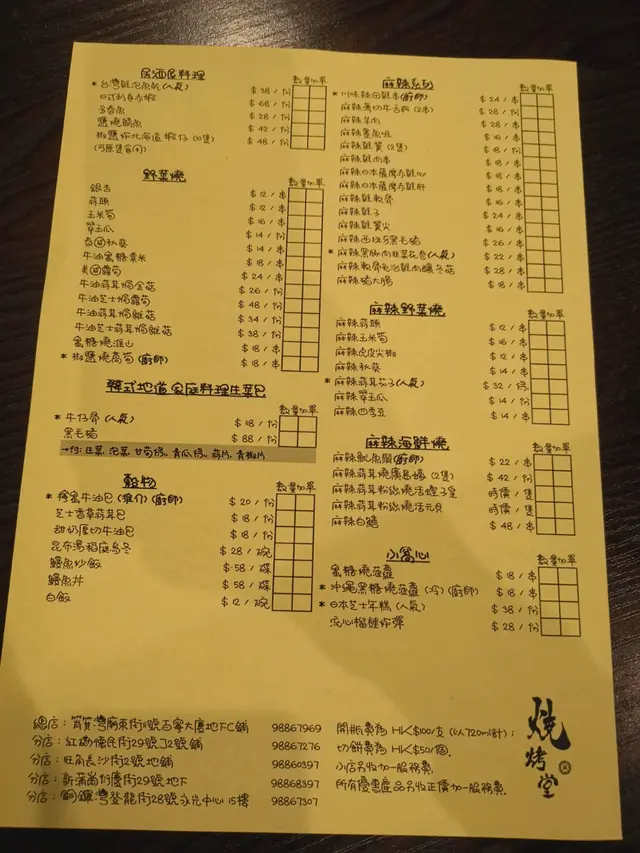 居酒屋料理
數量 加單
* 台灣魷 (人氣) $38/份
日式 $68/份
多春魚 $28/份
鹽燒鯖魚 $42/份
椒鹽炸北海道蝦仔 (10隻) $48/份
野菜燒
數量 加單
銀杏 $12/串
蒜頭 $12/串
玉米筍 $16/串
翠玉瓜 $14/串
秋葵 $14/串
牛油蜜糖粟米 $18/串
露筍 $24/串
牛油蒜茸焗金菇 $26/份
牛油芝士焗露筍 $48/份
牛油蒜茸焗雜菇 $34/份
牛油芝士蒜茸焗雜菇 $38/份
蜜糖燒淮山 $18/串
* 椒鹽燒萵筍 (廚師) $18/串
韓式地道家庭料理生菜包
數量 加單
* 牛仔骨 (人氣) $118/份
黑毛豬 $88/份
→付: 生菜, 泡菜, 甘筍條, 青瓜條, 蒜片, 青椒片
穀物
數量 加單
* 蜜牛油包 (推介) (廚師) $20/份
芝士香草蒜茸包 $18/份
甜奶厚切牛油包 $18/份
昆布湯稻庭烏冬 $28/碗
鰻魚炒飯 $58/碟
鰻魚丼 $58/碟
白飯 $12/碗
麻辣系列
數量 加單
* 川味辣田雞串 (廚師) $24/串
麻辣薄切牛舌 (2串) $28/份
麻辣羊肉 $28/串
麻辣 $16/串
麻辣雞翼 (2隻) $18/份
麻辣雞肉串 $18/串
麻辣日本薩摩赤雞心 $18/串
麻辣日本薩摩赤雞肝 $18/串
麻辣雞軟骨 $18/串
麻辣雞子 $24/串
麻辣雞翼尖 $16/串
麻辣西班牙黑毛豬 $26/串
* 麻辣黑豚肉韮菜花卷 (人氣) $22/串
麻辣軟骨 雞肉釀冬菇 $28/串
麻辣豬大腸 $18/串
麻辣野菜燒
數量 加單
麻辣蒜頭 $12/串
麻辣玉米筍 $16/串
麻辣虎皮尖椒 $12/串
麻辣秋葵 $14/串
* 麻辣蒜茸茄子 (人氣) $32/條
麻辣翠玉瓜 $14/串
麻辣四季豆 $14/串
麻辣海鮮燒
數量 加單
麻辣魷魚鬚 (廚師) $22/串
麻辣蒜茸燒廣島蠔 (2隻) $42/份
麻辣蒜茸粉絲燒活蟶子皇 時價/隻
麻辣蒜茸粉絲燒活元貝 時價/隻
麻辣白鱔 $48/串
小窩心
數量 加單
蜜糖燒菠蘿 $18/串
* 沖繩黑糖燒菠蘿 (冷) (廚師) $18/串
* 日本芝士年糕 (人氣) $38/份
流心榴槤炸彈 $28/份
總店: 筲箕灣廟東街11號百寧大廈地下C舖 98867969
分店: 紅磡機利街29號J2號舖 98867276
分店: 旺角長沙街2號地舖 98860397
分店: 新蒲崗衍慶街29號地下 98868397
分店: 銅鑼灣登龍街28號永光中心15樓 98867307
開瓶費為 HK$100/支 (以720ml計);
切餅費為 HK$50/個.
小店另收加一服務費.
所有優惠產品另收正價加一服務費.
燒烤堂